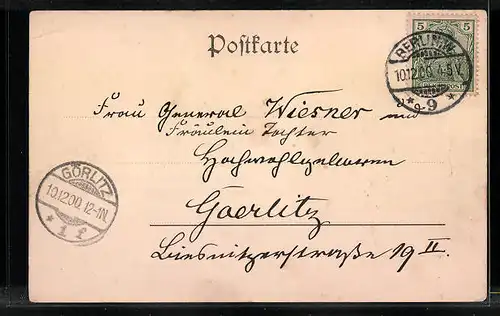 Postkarte
5 5
BERLIN
10.12.00. 4-5 V.
* 9 *
Frau General Wiesner und
Fräulein Tochter
Hochwohlgeboren
GÖRLITZ
10.12.00. 12-1N.
* 1 f
Goerlitz
Biesnitzerstraße 19 II.